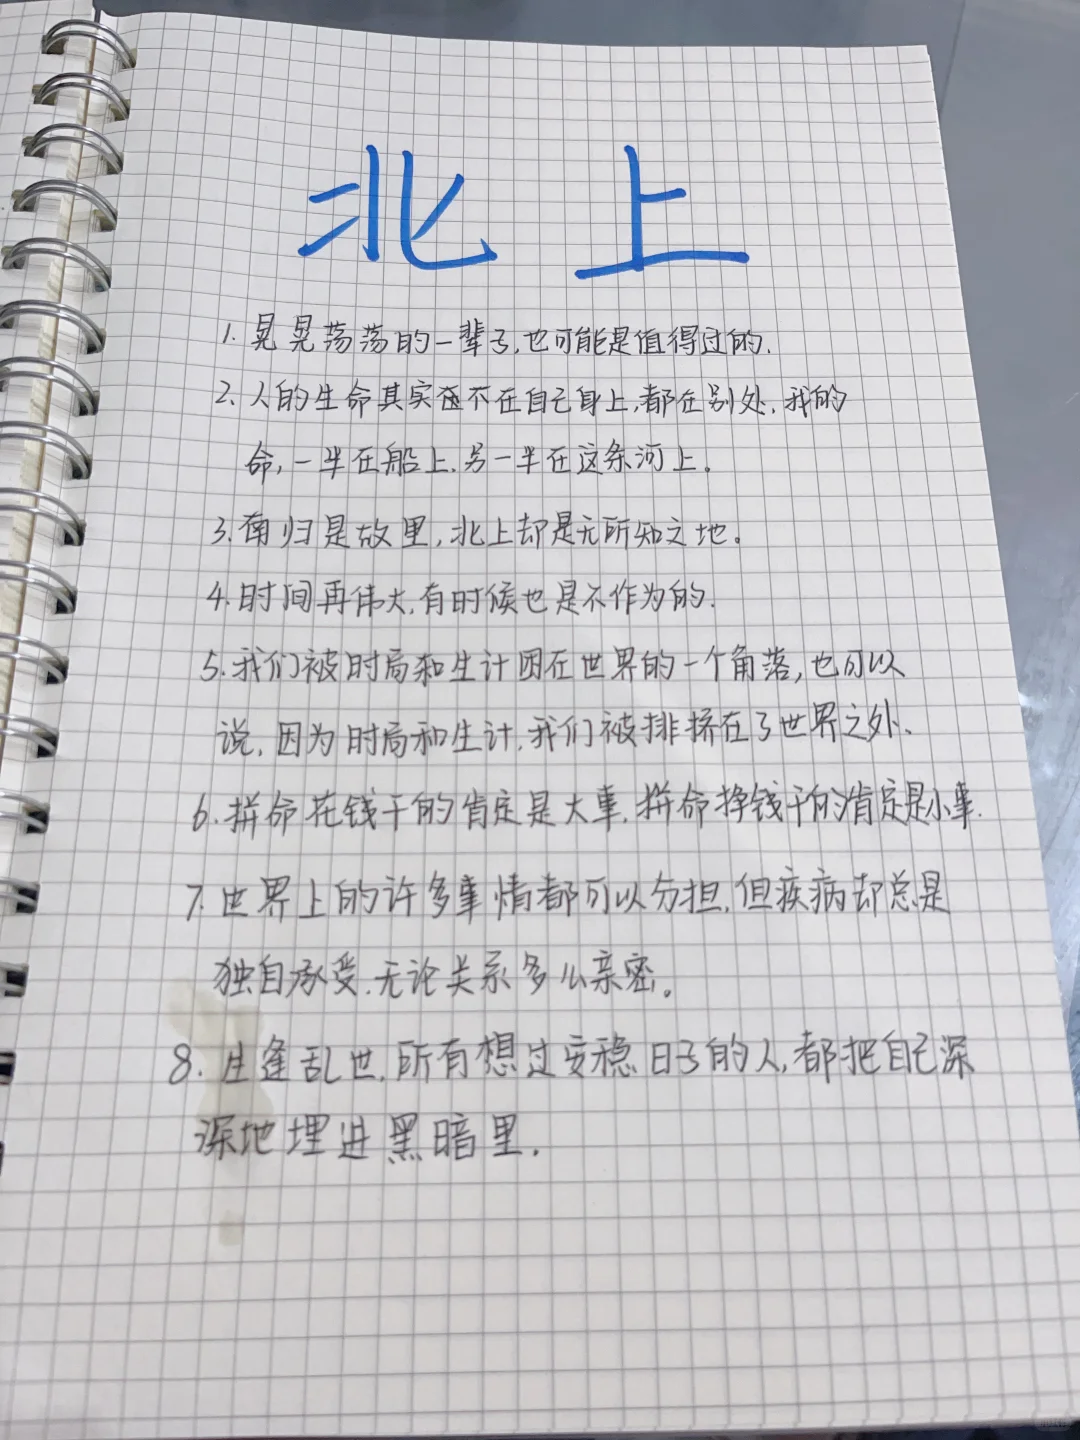 北上
1. 晃晃荡荡的一辈子,也可能是值得过的.
2. 人的生命其实不在自己身上,都在别处,我的
命,一半在船上,另一半在这条河上。
3. 南归是故里,北上却是无所知之地。
4. 时间再伟大,有时候也是不作为的.
5. 我们被时局和生计困在世界的一个角落,也可以
说,因为时局和生计,我们被排挤在了世界之外、
6. 拼命花钱干的肯定是大事,拼命挣钱干的肯定是小事.
7. 世界上的许多事情都可以分担,但疾病却总是
独自承受,无论关系多么亲密。
8. 生逢乱世,所有想过安稳日子的人,都把自己深
深地埋进黑暗里.